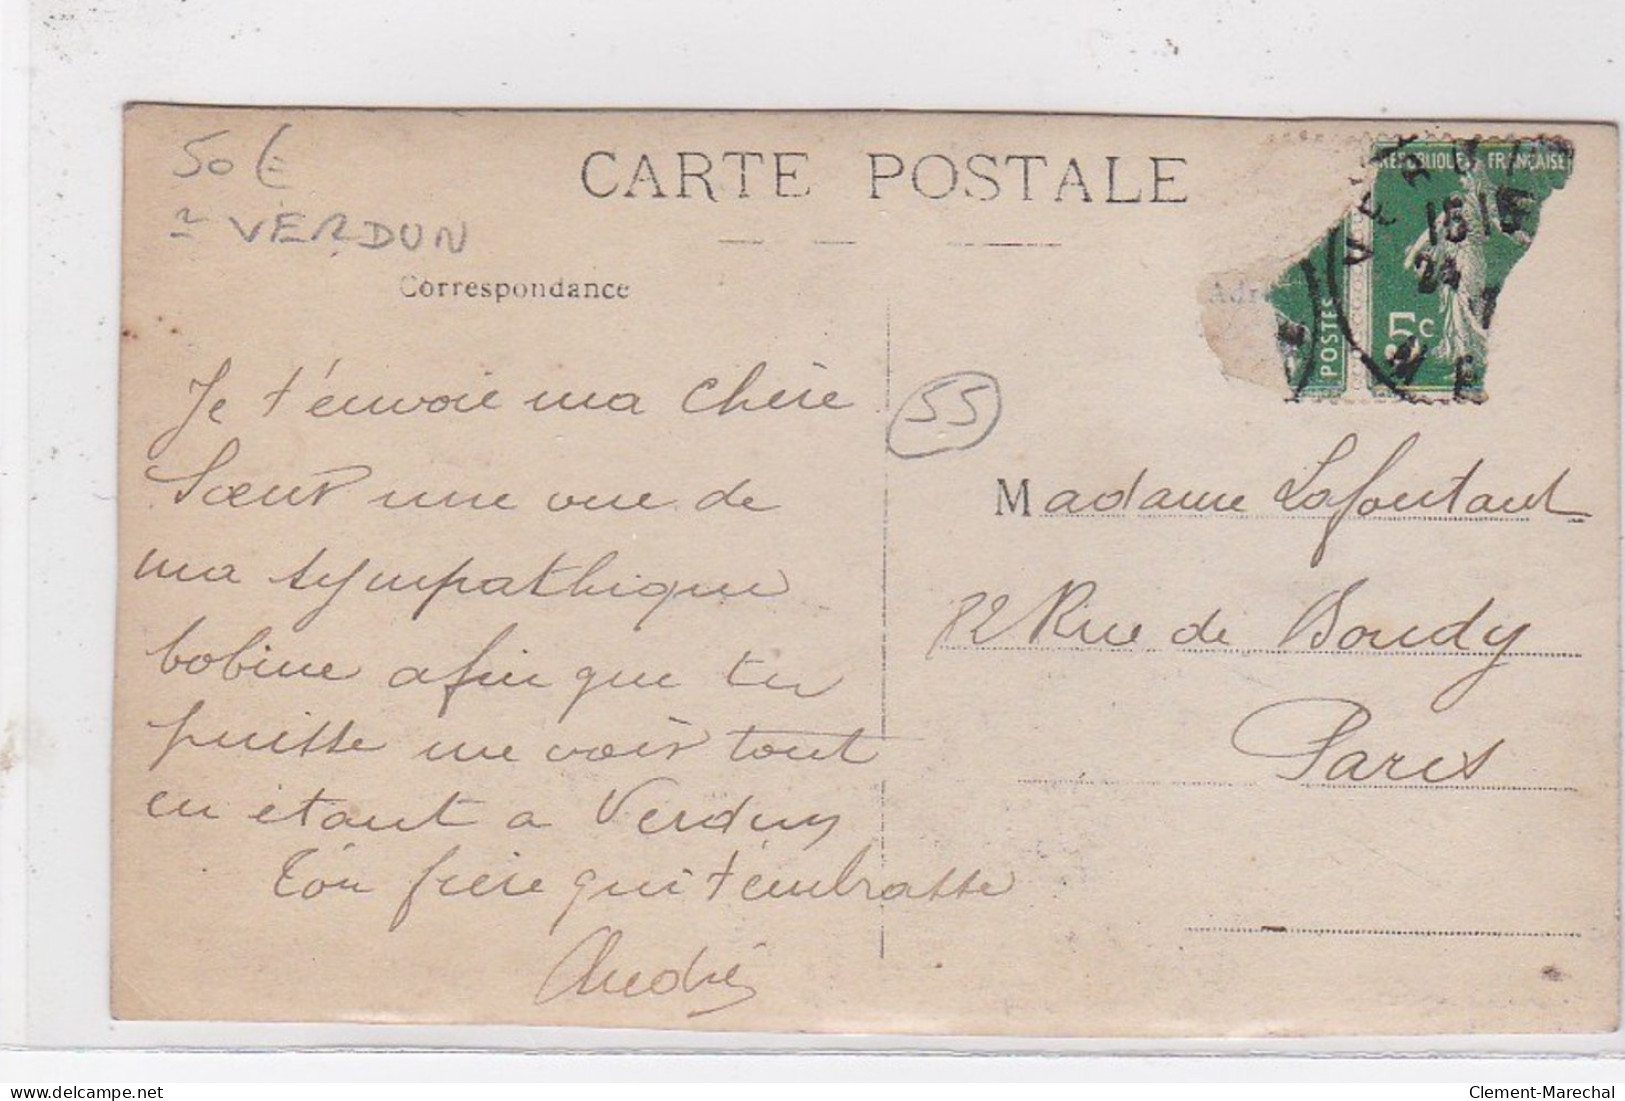 50€
VERDUN
CARTE POSTALE
Correspondance
REPUBLIQUE FRANÇAISE
POSTES
5c
VERDUN
15 15
24
55
Je t'envoie ma chère
Sœur une vue de
ma sympathique
bobine afin que tu
puisse me voir tout
en étant a Verdun
Ton frère qui t'embrasse
André
Madame Lafontant
Rue de Bondy
Paris
delcampe.net
Clement-Marechal